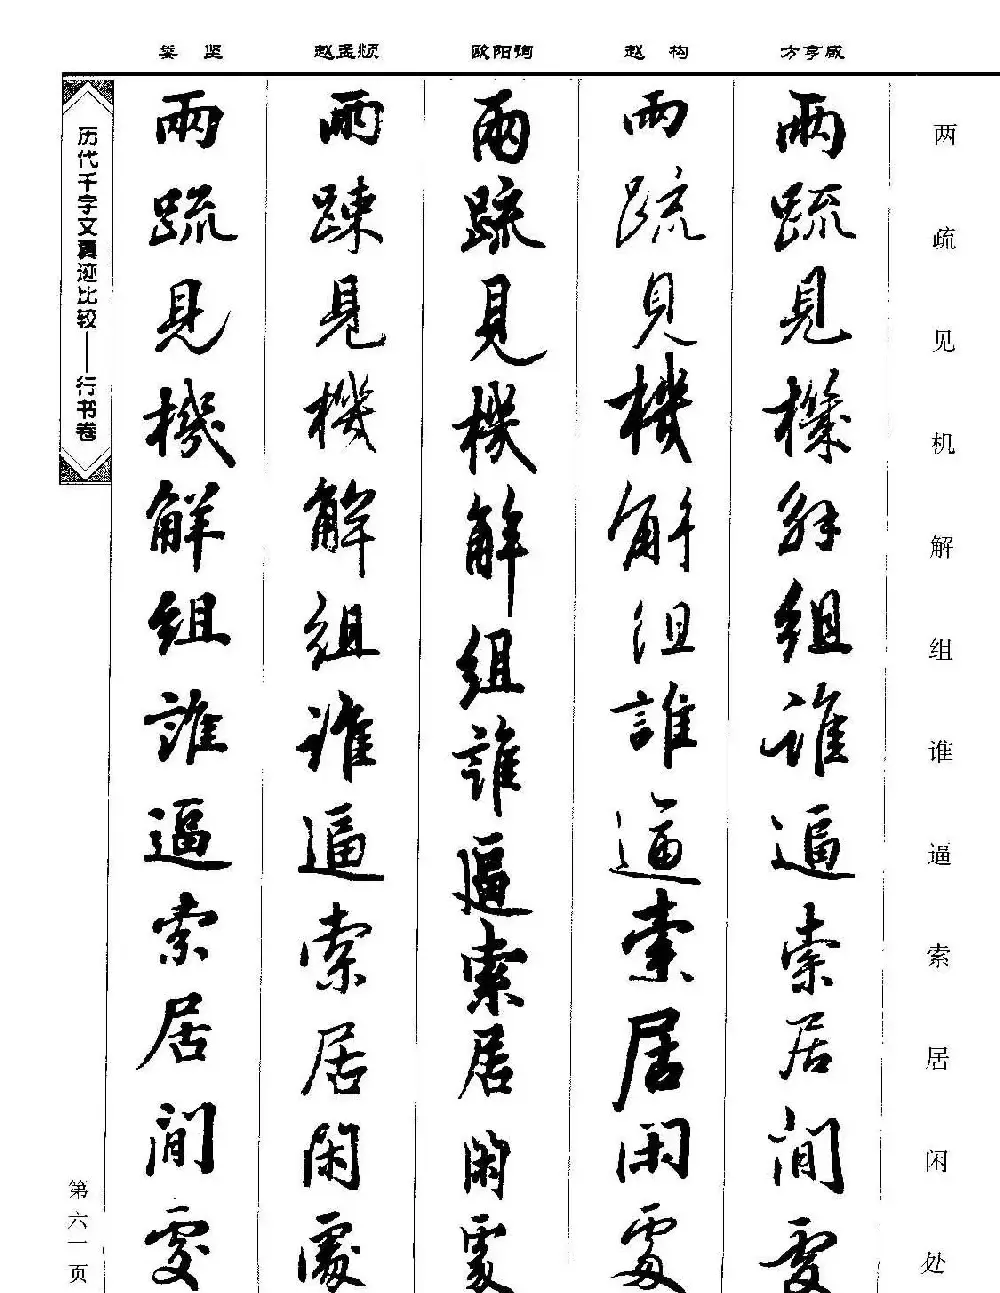 娄坚 赵孟頫 欧阳询 赵构 方孝孺
历代千字文真迹比较——行书卷
兩疏見機解組誰逼索居閒處
兩踈見機解組誰逼索居閑處
兩疏見機解組誰逼索居閑處
兩疏見機解組誰逼索居閑處
兩疏見機解組誰逼索居閒處
两疏见机解组谁逼索居闲处
第六一页